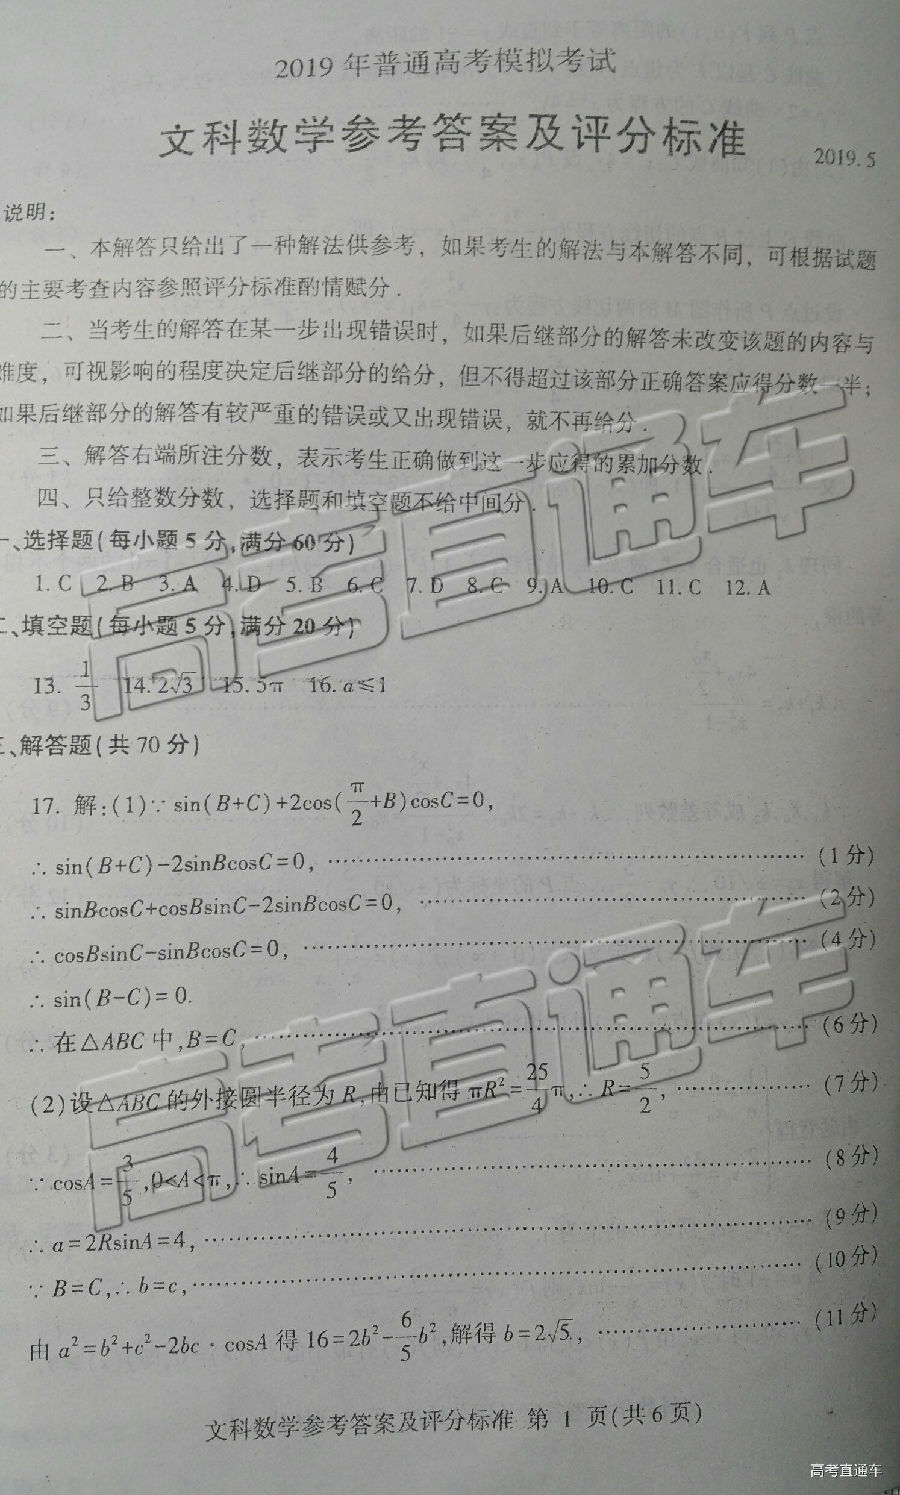 2019 年普通高考模拟考试
文科数学参考答案及评分标准
2019.5
说明:
一、本解答只给出了一种解法供参考，如果考生的解法与本解答不同，可根据试题
的主要考查内容参照评分标准酌情赋分.
二、当考生的解答在某一步出现错误时，如果后继部分的解答未改变该题的内容与
难度，可视影响的程度决定后继部分的给分，但不得超过该部分正确答案应得分数一半;
如果后继部分的解答有较严重的错误或又出现错误，就不再给分.
三、解答右端所注分数，表示考生正确做到这一步应得的累加分数.
四、只给整数分数，选择题和填空题不给中间分.
一、选择题(每小题5分,满分60分)
1. C 2. B 3. A 4. D 5. B 6. C 7. D 8. C 9. A 10. C 11. C 12. A
二、填空题(每小题5分,满分20分)
13. 1/3 14. 2√3 15. 5π 16. a≤1
三、解答题(共70分)
17. 解:(1)∵ sin(B+C)+2cos(π/2+B)cosC=0,
∴ sin(B+C)-2sinBcosC=0, …… (1分)
∴ sinBcosC+cosBsinC-2sinBcosC=0, …… (2分)
∴ cosBsinC-sinBcosC=0, …… (4分)
∴ sin(B-C)=0.
∴ 在△ABC中,B=C, …… (6分)
(2)设△ABC的外接圆半径为R,由已知得πR²=25/4π,∴R=5/2, …… (7分)
∵ cosA=3/5,0<A<π,∴ sinA=4/5, …… (8分)
∴ a=2RsinA=4, …… (9分)
∵ B=C,∴ b=c, …… (10分)
由a²=b²+c²-2bc·cosA得16=2b²-6/5b²,解得b=2√5, …… (11分)
文科数学参考答案及评分标准 第 1 页(共6页)
高考直通车
高考直通车
高考直通车